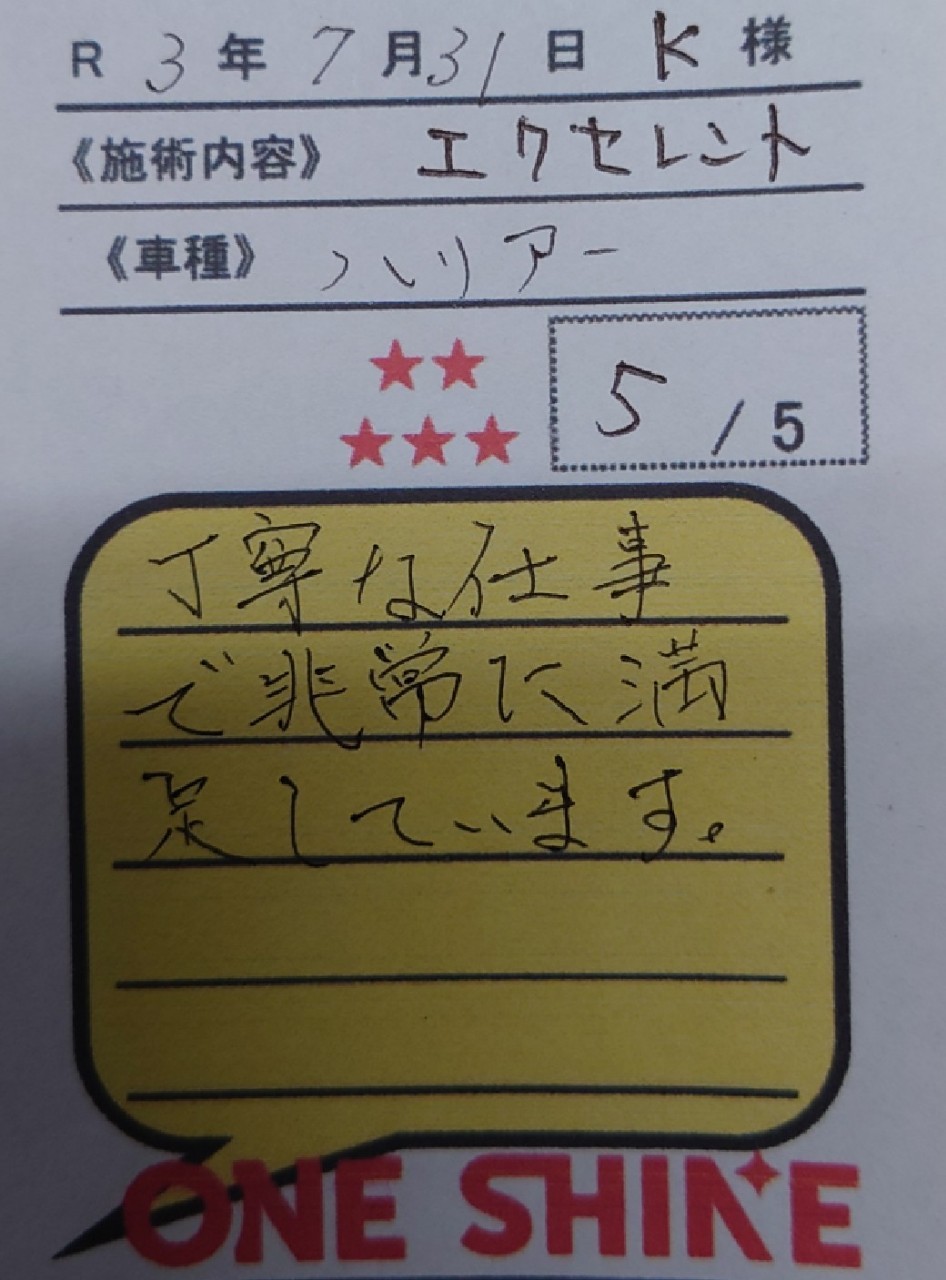 R 3年 7月31日 K 様
《施術内容》 エクセレント
《車種》 ハリアー
5 / 5
丁寧な仕事
で非常に満
足しています。
ONE SHINE